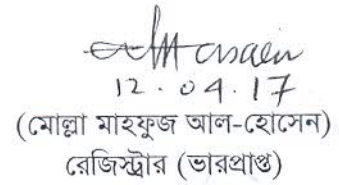 12.04.17
(মোল্লা মাহফুজ আল-হোসেন)
রেজিস্ট্রার (ভারপ্রাপ্ত)